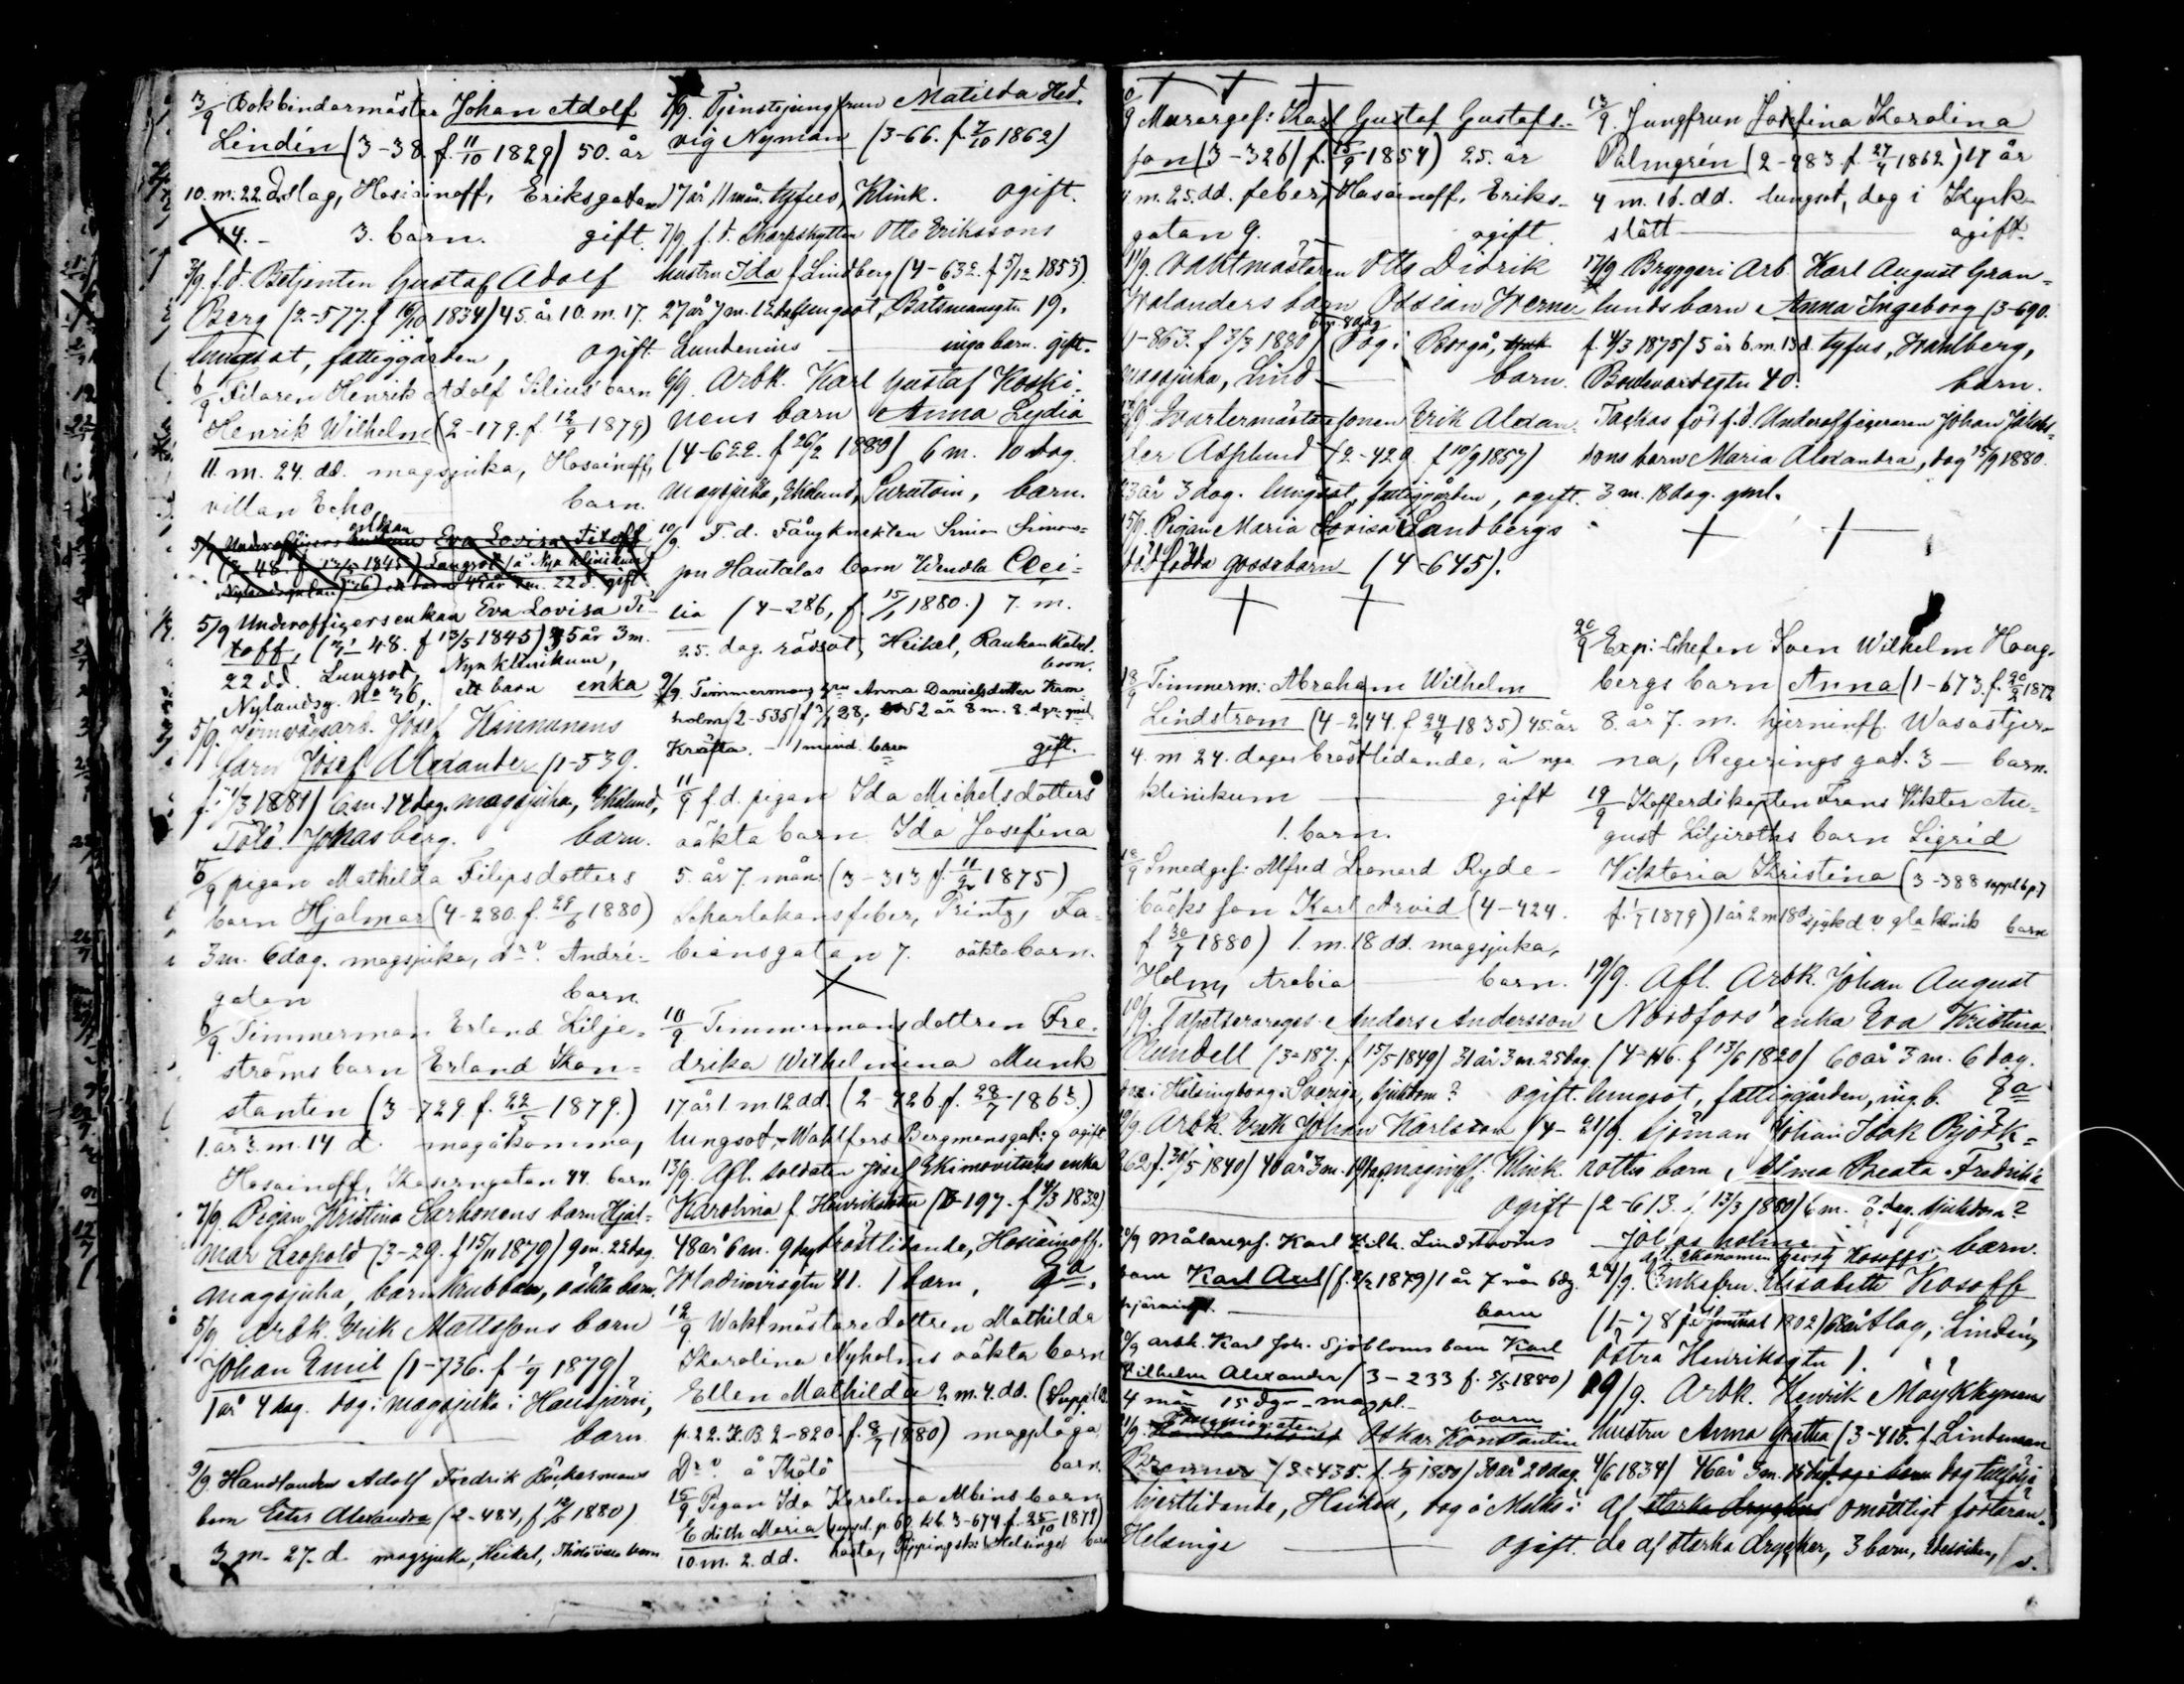 3/9 Bokbindarmäster Johan Adolf
Lindén (3-38. f. 11/10 1829) 50. år
10. m. 22. d. slag, Hosiainoff, Eriksgatan
14. - 3. barn. gift.
3/9. f.d. Betjenten Gustaf Adolf
Berg (2-577. f 16/10 1834) 45. år 10. m. 17.
lungsot, fattiggården, ogift.
6/9 Filaren Henrik Adolf Silius barn
Henrik Wilhelm (2-179. f. 12/9 1879)
11. m. 24. dd. magsjuka, Hosainoff,
villan Echo barn.
5/9 Underofficers enkan Eva Lovisa Titoff
48. f. 13/5 1845) Lungsot (å Nya klinikum)
22 d. gift
5/9 Underofficersenkan Eva Lovisa Ti-
toff, (48. f 13/5 1845) 35 år 3 m.
22 dd. Lungsot, Nya klinikum,
Nylandsg. No 36, ett barn enka
5/9. Jernvägsarb. Josef Kinnunens
barn Josef Alexander (1-539.
6 m. 14 dag. magsjuka, Eklund,
Tölö Johasberg. barn.
6/9 pigan Mathilda Filipsdotters
barn Hjalmar (4-280. f. 1880)
3 m. 6 dag. magsjuka, André-
gatan barn
6/9. Timmerman Erland Lilje-
ströms barn Erland Kon-
stantin (3-729 f. 22/5 1879.)
1. år 3. m. 14 d. magåkomma,
Hosainoff, Kaserngatan 44. barn
7/9. Pigan Kristina Sarkonens barn Hjal-
mar Leopold (3-29. f 15/11 1879) 9 m. 22 dag.
magsjuka, barnkrubban, oäkta barn.
5/9 Arbk. Erik Mattssons barn
Johan Emil (1-736. f 1/9 1879)
1 år 4 dag. dog i magsjuka i Hausjärvi,
barn
9/9. Handlanden Adolf Fredrik Böckermans
barn Ester Alexandra (2-484, f 1880)
3 m. 27. d. magsjuka, Heikel, Thölö villa barn
7/9. Tjenstejungfrun Matilda Hed-
vig Nyman (3-66. f. 7/10 1862)
17 år 11 mån. tyfus, Klink. ogift.
7/9 f.d. Skarpskytten Otto Erikssons
hustru Ida f Lindberg (4-632. f 5/12 1853)
27 år 7 m. 12 dag lungsot, Båtsmansgtn 19.
Lundenius inga barn. gift.
6/9 Arbk. Karl Gustaf Koski-
nens barn Anna Lydia
(4-622. f 26/2 1880) 6 m. 10 dag.
Magsjuka, Eklund, Suratoin, barn.
10/9 F.d. Fångknekten Simon Simons-
son Hautalas barn Wendla Ceci-
lia (4-286, f. 15/1 1880.) 7. m.
25. dag. rödsot, Heikel, Rauhankatu.
barn.
9/9. Timmermans fru Anna Danielsdotter Kam
holm (2-535) 52 år 8 m. 8. dgr.
Kräfta. - 1 mind. barn gift.
11/9 f.d. pigan Ida Michelsdotters
oäkta barn Ida Josefina
5. år 7. mån: (3-313 f. 11/2 1875)
Scharlakansfeber, Printz, Fa-
biansgatan 7. oäkta barn.
10/9 Timmermansdottren Fre-
drika Wilhelmina Munk
17 år 1. m. 12 dd. (2-726 f. 28/7 1863.)
lungsot, Wahlfors Bergmansgat: 9 ogift
13/9. Afl. soldaten Josef Ekimovitschs enka
Karolina f. Henriksdotter (3-197. f 4/3 1832)
48 år 6 m. 9 dag bröstlidande, Hosiainoff,
Wladimirsgtn 41. 1 barn, Ea.
12/9 Waktmästaredottren Mathilda
Karolina Nyholms oäkta barn
Ellen Mathilda 2. m. 4. dd. (Suppl:
p. 22. K.B. 2-820. f. 8/7 1880) magplåga
å Thölö barn.
15/9 Pigan Ida Karolina Albins barn
Edith Maria (suppl. p. 67. kb. 3-674 f. 25/10 1879)
10. m. 2. dd. hosta, Helsinge barn
9 Murargef: Karl Gustaf Gustafs-
son (3-326) f. 15/9 1854) 25. år
11 m. 25. dd. feber, Hosainoff, Eriks-
gatan 9. ogift
11/9. Vaktmästaren Otto Didrik
Walanders barn Ossian Werner
(1-863. f 3/3 1880) 6 m. 8 dag dog i Borgå,
magsjuka, Lind barn.
13/9. Kvartermästaresonen Erik Alexan-
der Asplund (2-429. f 10/9 1857)
23 år 3 dag. lungsot, fattiggården, ogift.
15/9. Pigan Maria Lovisa Sandbergs
dödfödda gossebarn (4-645).
18/9 Timmerm: Abraham Wilhelm
Lindstrom (4-244. f 24/4 1835) 45. år
4. m 24. dagar bröstlidande, å nya
klinikum gift
1. barn.
18/9 Smedgef: Alfred Leonard Ryde-
bäcks son Karl Arvid (4-424.
f 30/7 1880) 1. m. 18 dd. magsjuka,
Holm, Arabia barn.
10/9. Tapetseraregs. Anders Andersson
Rundell (3-187. f 15/5 1849) 31 år 3 m. 25 dag.
dog i Helsingborg i Sverige, sjukdom? ogift.
19/9. Arbk. Erik Johan Karlsson (4-
262 f. 30/5 1840) 40 år 3 m. 19 dag. maginff. Klink.
ogift
20/9 Målaregef. Karl Wilh. Lindströms
barn Karl Axel (f. 1879) 1 år 7 mån 6 dg.
hjärninfl. barn
20/9 arbk. Karl Joh. Sjöbloms barn Karl
Wilhelm Alexander (3-233 f. 5/5 1880)
4 mån 15 dgr. magpl.
barn
21/9. Oskar Konstantin
(3-435. f. 1/9 1850) 30 år 20 dag.
hjertlidande, Heikel, dog å Malm i
Helsinge ogift.
13/9. Jungfrun Josefina Karolina
Palmgrén (2-983 f. 27/4 1862) 17 år
4 m. 16. dd. lungsot, dog i Kyrk-
slätt ogift.
17/9 Bryggeri Arb. Karl August Gran-
lunds barn Anna Ingeborg (3-690.
f. 4/3 1875) 5 år 6. m. 13 d. tyfus, Wahlberg,
Boulevardsgtn 40. barn.
Tackas för f.d. Underofficeraren Johan Jakobs-
sons barn Maria Alexandra, dog 15/9 1880.
3 m. 18 dag. gml.
20/9 Exp:-Chefen Sven Wilhelm Hong-
bergs barn Anna (1-673. f. 20/2 1872
8. år 7. m. hjerninff. Wasastjer-
na, Regeringsgat. 3 - barn.
19/9 Kofferdikapten Frans Viktor Au-
gust Liljeroths barn Sigrid
Viktoria Kristina (3-388 suppl 6 p.7
f. 1/7 1879) 1 år 2 m 18 d sjukd v gla klinik barn
19/9. Afl. Arbk. Johan August
Nordfors' enka Eva Kristina
(4-146. f 13/6 1820) 60 år 3 m. 6 dag.
lungsot, fattiggården, ing. b. Ea
21/9. Sjöman Johan Isak Björk-
rotts barn, Alma Beata Fredrika
(2-613. f 13/3 1880) 6 m. 8 dag. sjukdom?
Jollas holme barn.
24/9. Enkefru. Elisabeth Kosoff
1802) slag, Lindén,
Östra Henriksgtn 1.
19/9. Arbk. Henrik Maykkynens
hustru Anna Gretha (3-415. f. Lindeman
4/6 1834) 46 år 3 m. 15 dag. dog till följd
af starka drycker omåttligt förtäran-
de af starka drycker, 3 barn,